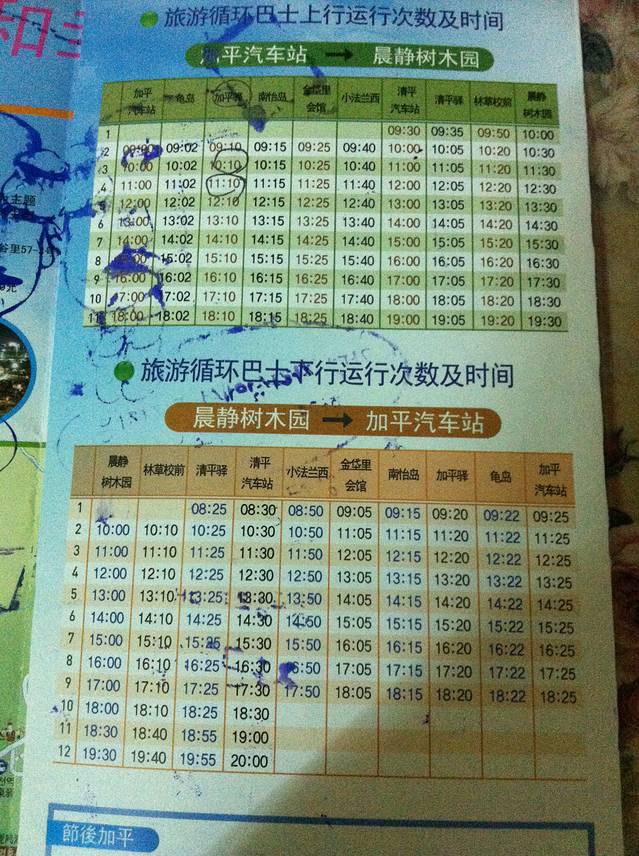 旅游循环巴士上行运行次数及时间
加平汽车站 → 晨静树木园
加平汽车站 龟岛 加平驿 南怡岛 金岱里会馆 小法兰西 清平汽车站 清平驿 林草校前 晨静树木园
1 09:30 09:35 09:50 10:00
2 09:00 09:02 09:10 09:15 09:25 09:40 10:00 10:05 10:20 10:30
3 10:00 10:02 10:10 10:15 10:25 10:40 11:00 11:05 11:20 11:30
4 11:00 11:02 11:10 11:15 11:25 11:40 12:00 12:05 12:20 12:30
5 12:00 12:02 12:10 12:15 12:25 12:40 13:00 13:05 13:20 13:30
6 13:00 13:02 13:10 13:15 13:25 13:40 14:00 14:05 14:20 14:30
7 14:00 14:02 14:10 14:15 14:25 14:40 15:00 15:05 15:20 15:30
8 15:00 15:02 15:10 15:15 15:25 15:40 16:00 16:05 16:20 16:30
9 16:00 16:02 16:10 16:15 16:25 16:40 17:00 17:05 17:20 17:30
10 17:00 17:02 17:10 17:15 17:25 17:40 18:00 18:05 18:20 18:30
11 18:00 18:02 18:10 18:15 18:25 18:40 19:00 19:05 19:20 19:30
旅游循环巴士下行运行次数及时间
晨静树木园 → 加平汽车站
晨静树木园 林草校前 清平驿 清平汽车站 小法兰西 金岱里会馆 南怡岛 加平驿 龟岛 加平汽车站
1 08:25 08:30 08:50 09:05 09:15 09:20 09:22 09:25
2 10:00 10:10 10:25 10:30 10:50 11:05 11:15 11:20 11:22 11:25
3 11:00 11:10 11:25 11:30 11:50 12:05 12:15 12:20 12:22 12:25
4 12:00 12:10 12:25 12:30 12:50 13:05 13:15 13:20 13:22 13:25
5 13:00 13:10 13:25 13:30 13:50 14:05 14:15 14:20 14:22 14:25
6 14:00 14:10 14:25 14:30 14:50 15:05 15:15 15:20 15:22 15:25
7 15:00 15:10 15:25 15:30 15:50 16:05 16:15 16:20 16:22 16:25
8 16:00 16:10 16:25 16:30 16:50 17:05 17:15 17:20 17:22 17:25
9 17:00 17:10 17:25 17:30 17:50 18:05 18:15 18:20 18:22 18:25
10 18:00 18:10 18:25 18:30
11 18:30 18:40 18:55 19:00
12 19:30 19:40 19:55 20:00
節後加平